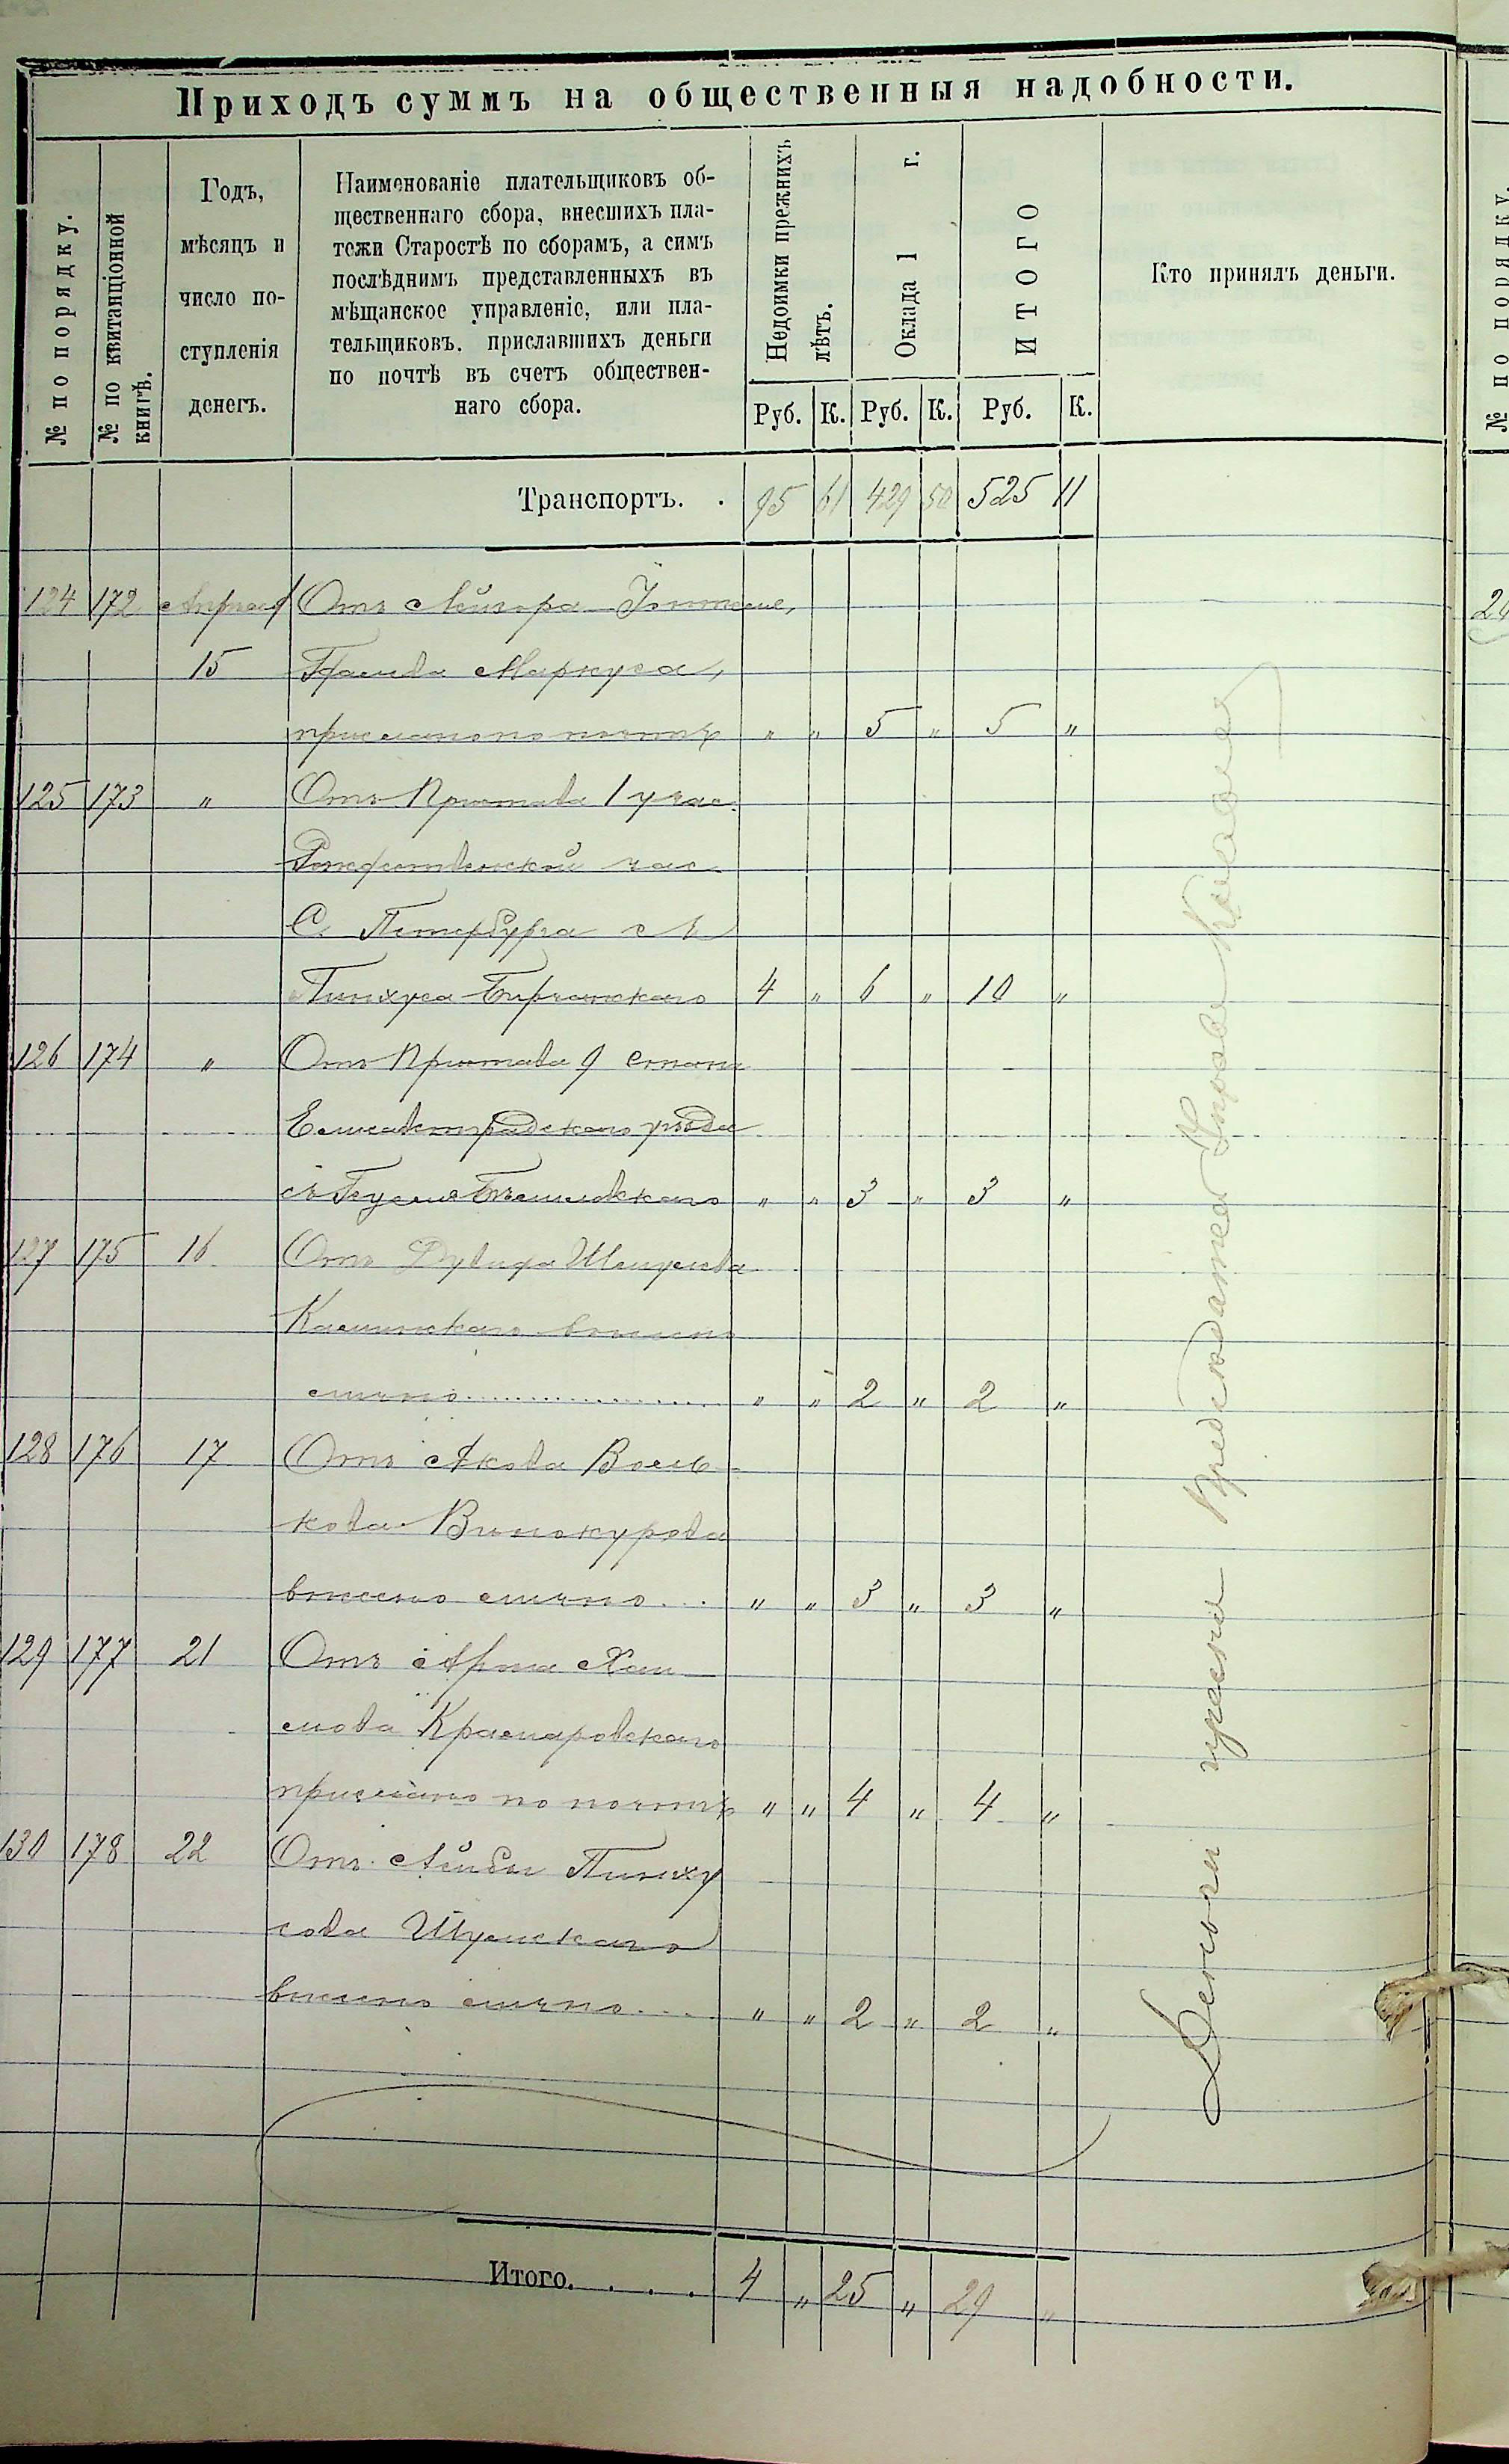 Приходъ суммъ на общественныя надобности.
№ по порядку.
№ по квитанціонной книгѣ.
Годъ,
мѣсяцъ и
число по-
ступленія
денегъ.
Наименованіе плательщиковъ об-
щественнаго сбора, внесшихъ пла-
тежи Старостѣ по сборамъ, а симъ
послѣднимъ представленныхъ въ
мѣщанское управленіе, или пла-
тельщиковъ, приславшихъ деньги
по почтѣ въ счетъ обществен-
наго сбора.
Недоимки прежнихъ лѣтъ.
Оклада 1 г.
ИТОГО
Руб. К. Руб. К. Руб. К.
Кто принялъ деньги.
Транспортъ. . 95 61 429 50 525 11
124 172 Апрѣля Отъ Лейзора
15 Маркуса,
прислано по почтѣ " " 5 " 5 "
125 173 " Отъ Пристава 1 учас.
Рождественской час.
С. Петербурга съ
Пинхуса 4 " 6 " 10 "
126 174 " Отъ Пристава 9 стана
Елисаветградскаго уѣзда
съ " " 3 " 3 "
127 175 16 Отъ
внесено
лично " " 2 " 2 "
128 176 17 Отъ Якова Воль
кова Винокурова
внесено лично... " " 3 " 3 "
129 177 21 Отъ Арона Хаи
мова
прислано по почтѣ " " 4 " 4 "
130 178 22 Отъ Лейбы Пинху
сова Шумскаго
внесено лично.... " " 2 " 2 "
Итого. . . . 4 " 25 " 29 "
Деньги принялъ Предсѣдатель Управы
№ по порядку.